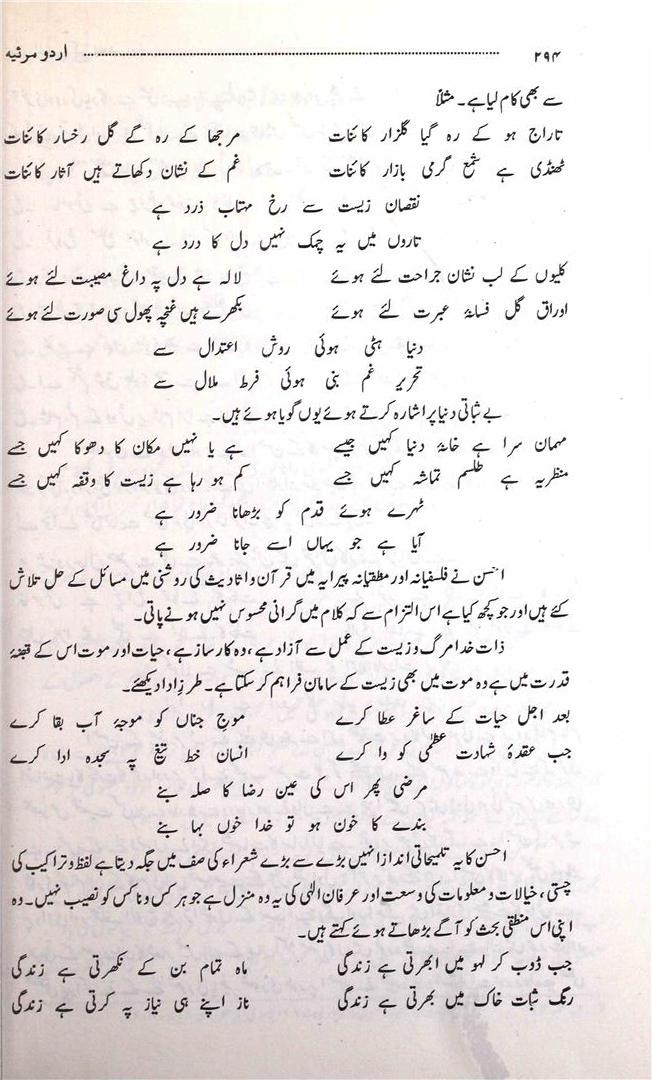 ۲۹۴ اردو مرثیہ
سے بھی کام لیا ہے۔ مثلاً
تاراج ہو کے رہ گیا گلزار کائنات مرجھا کے رہ گے گل رخسار کائنات
ٹھنڈی ہے شمع گرمی بازار کائنات غم کے نشان دکھاتے ہیں آثار کائنات
نقصان زیست سے رخ مہتاب ذرد ہے
تاروں میں یہ چمک نہیں دل کا درد ہے
کلیوں کے لب نشان جراحت لئے ہوئے لالہ ہے دل پہ داغ مصیبت لئے ہوئے
اوراق گل فسانۂ عبرت لئے ہوئے بکھرے ہیں غنچہ پھول سی صورت لئے ہوئے
دنیا ہٹی ہوئی روش اعتدال سے
تحریر غم بنی ہوئی فرط ملال سے
بے ثباتی دنیا پر اشارہ کرتے ہوئے یوں گویا ہوئے ہیں۔
مہمان سرا ہے خانۂ دنیا کہیں جیسے ہے یا نہیں مکان کا دھوکا کہیں جسے
منظریہ ہے طلسم تماشہ کہیں جسے کم ہو رہا ہے زیست کا وقفہ کہیں جسے
ٹہرے ہوئے قدم کو بڑھانا ضرور ہے
آیا ہے جو یہاں اسے جانا ضرور ہے
احسن نے فلسفیانہ اور منطقیانہ پیرایہ میں قرآن و احادیث کی روشنی میں مسائل کے حل تلاش
کئے ہیں اور جو کچھ کہا ہے اس التزام سے کہ کلام میں گرانی محسوس نہیں ہونے پاتی۔
ذات خدا مرگ و زیست کے عمل سے آزاد ہے، وہ کارساز ہے، حیات اور موت اس کے قبضۂ
قدرت میں ہے وہ موت میں بھی زیست کے سامان فراہم کر سکتا ہے۔ طرز ادا دیکھئے۔
بعد اجل حیات کے ساغر عطا کرے موج جناں کو موجۂ آب بقا کرے
جب عقدۂ شہادت عظمیٰ کو وا کرے انسان خط تیغ پہ سجدہ ادا کرے
مرضی پھر اس کی عین رضا کا صلہ بنے
بندے کا خون ہو تو خدا خوں بہا بنے
احسن کا یہ تلمیحاتی انداز انہیں بڑے سے بڑے شعراء کی صف میں جگہ دیتا ہے لفظ و تراکیب کی
چستی، خیالات و معلومات کی وسعت اور عرفان الٰہی کی یہ وہ منزل ہے جو ہر کس و ناکس کو نصیب نہیں۔ وہ
اپنی اس منطقی بحث کو آگے بڑھاتے ہوئے کہتے ہیں۔
جب ڈوب کر لہو میں ابھرتی ہے زندگی ماہ تمام بن کے نکھرتی ہے زندگی
رنگ ثبات خاک میں بھرتی ہے زندگی ناز اپنے ہی نیاز پہ کرتی ہے زندگی